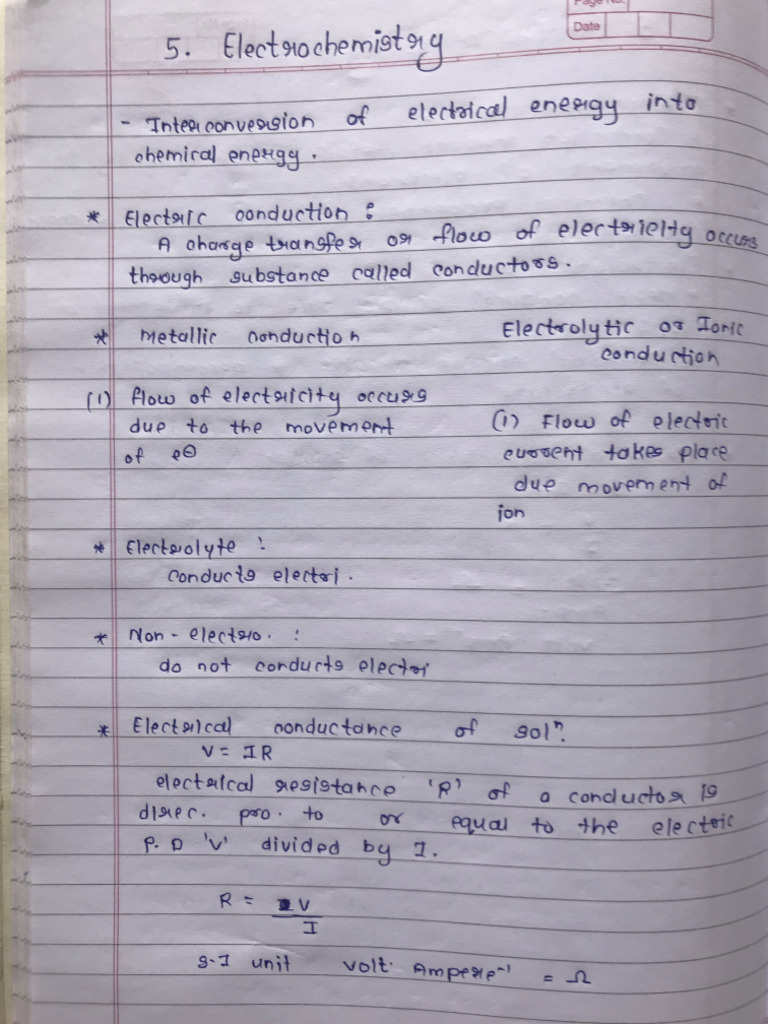 Page No.
Date
5. Electrochemistry
- Interconversion of electrical energy into
chemical energy.
* Electric conduction :
A charge transfer or flow of electricity occurs
through substance called conductors.
* Metallic conduction
(1) flow of electricity occurs
due to the movement
of e⊖
Electrolytic or Ionic
conduction
(1) Flow of electric
current takes place
due movement of
ion
* Electrolyte :
conducts electri.
* Non-electro. :
do not conducts electri
* Electrical conductance of solⁿ.
V = IR
electrical resistance 'R' of a conductor is
direc. pro. to or equal to the electric
P.D 'V' divided by I.
R = V
I
S.I unit volt. Ampere⁻¹ = Ω